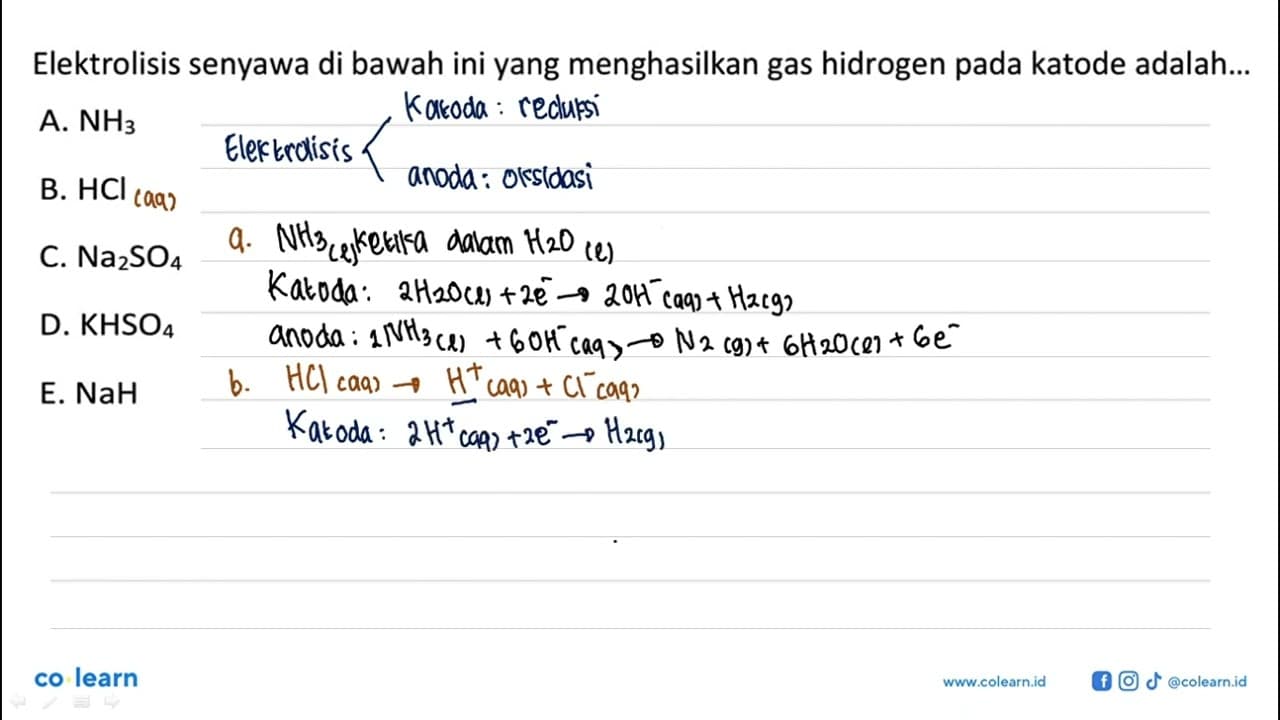 Elektrolisis senyawa di bawah ini yang menghasilkan gas hidrogen pada katode adalah...
A. NH₃
B. HCl (aq)
C. Na₂SO₄
D. KHSO₄
E. NaH
Elektrolisis
Katoda : reduksi
anoda : oksidasi
a. NH3(l) ketika dalam H2O (l)
Katoda : 2H2O(l) + 2e⁻ → 2OH⁻(aq) + H2(g)
anoda : 2NH3(l) + 6OH⁻(aq) → N2(g) + 6H2O(l) + 6e⁻
b. HCl(aq) → H⁺(aq) + Cl⁻(aq)
Katoda : 2H⁺(aq) + 2e⁻ → H2(g)
co learn
www.colearn.id
@colearn.id